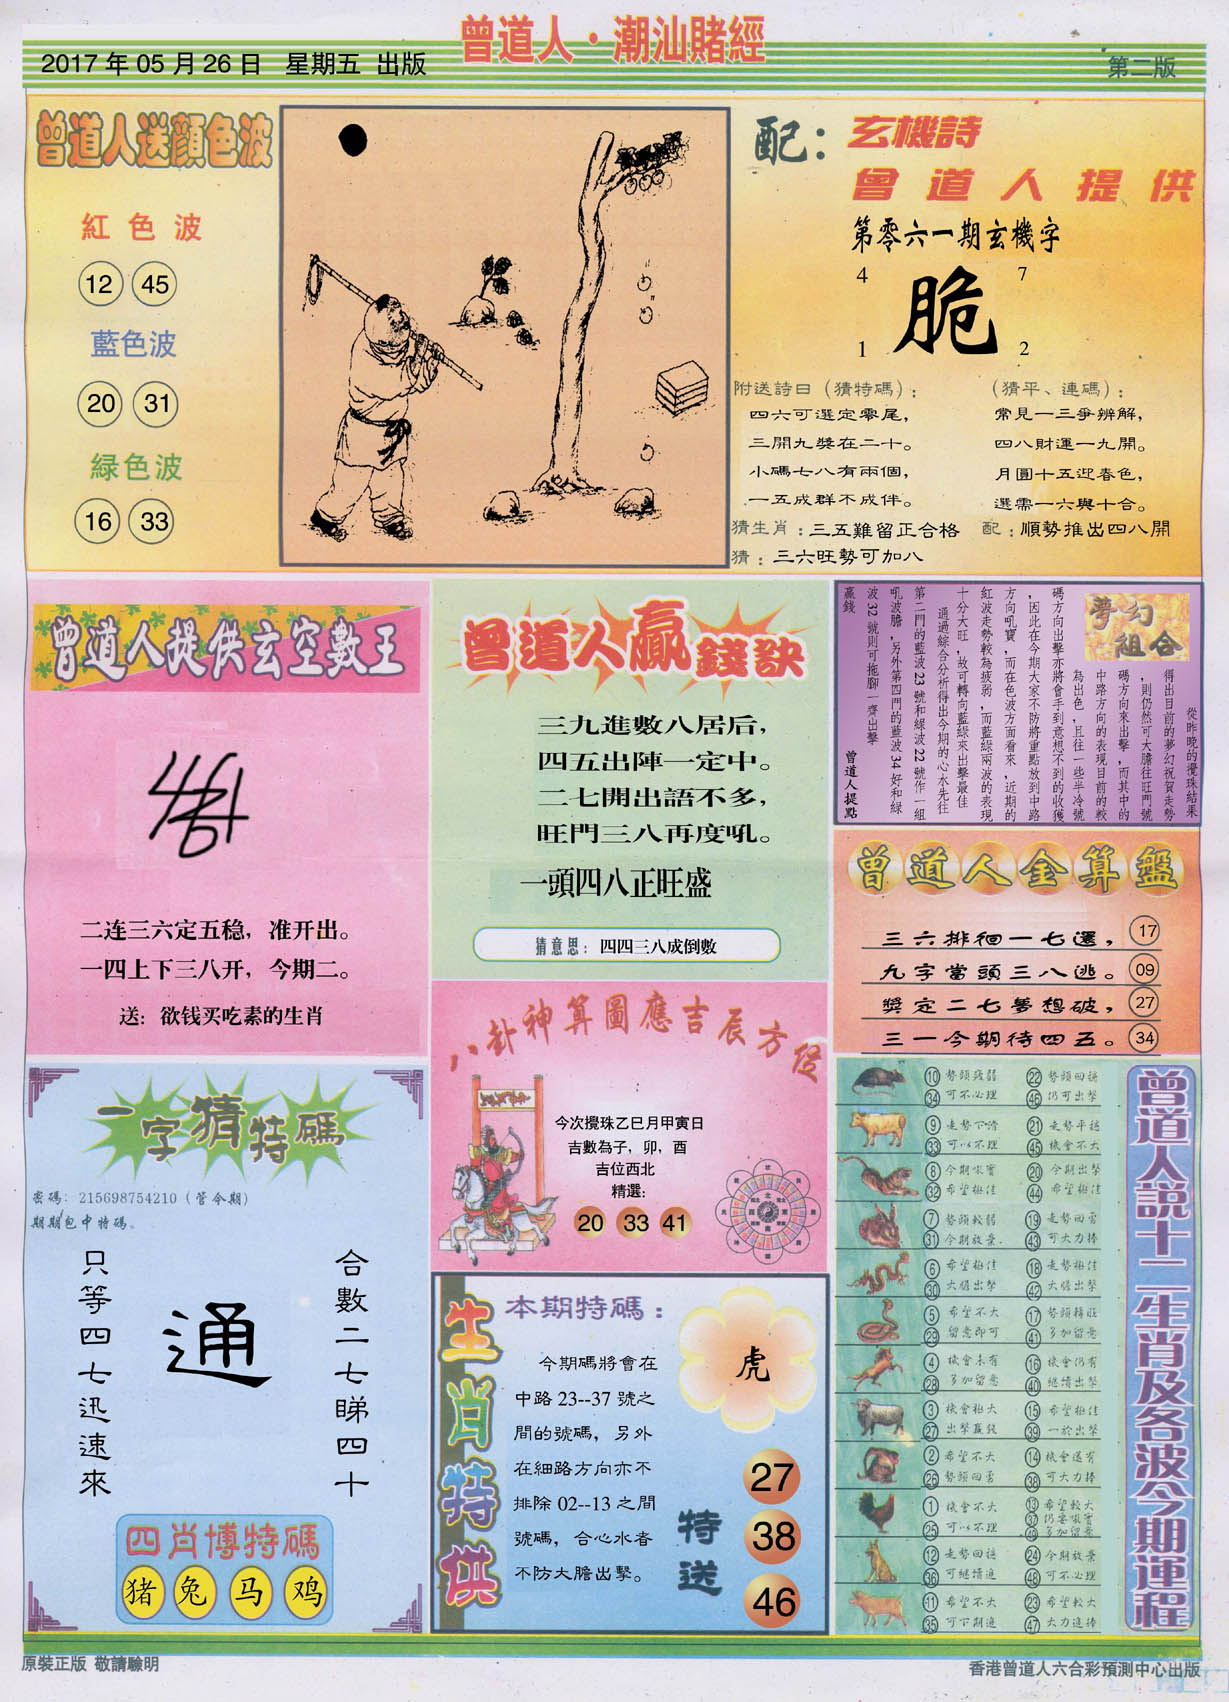 曾道人·潮汕賭經
2017 年 05 月 26 日 星期五 出版
第二版
曾道人送顏色波
紅色波
12 45
藍色波
20 31
緑色波
16 33
配：玄機詩
曾道人提供
第零六一期玄機字
4 7
脆
1 2
附送詩曰（猜特碼）：
四六可選定零尾，
三開九獎在二十。
小碼七八有兩個，
一五成群不成伴。
（猜平、連碼）：
常見一三爭辨解，
四八財運一九開。
月圓十五迎春色，
選需一六與十合。
猜生肖：三五難留正合格
配：順勢推出四八開
猜：三六旺勢可加八
曾道人提供玄空數王
二连三六定五稳，准开出。
一四上下三八开，今期二。
送：欲钱买吃素的生肖
曾道人贏錢訣
三九進數八居后，
四五出陣一定中。
二七開出語不多，
旺門三八再度吼。
一頭四八正旺盛
猜意思：四四三八成倒數
夢幻組合
從昨晚的攪珠結果
得出目前的夢幻祝賀走勢
，則仍然可大膽往旺門號
碼方向來出擊，而其中的
中路方向的表現目前的較
為出色，且往一些半冷號
碼方向出擊亦將會手到意想不到的收獲
，因此在今期大家不防將重點放到中路
方向吼寶，而在色波方面看來，近期的
紅波走勢較為疲弱，而藍綠兩波的表現
十分大旺，故可轉向藍綠來出擊最佳
通過綜合分析得出今期的心水先往
第二門的藍波 23 號和綠波 22 號作一組
吼波膽，另外第四門的藍波 34 好和綠
波 32 號則可拖腳一齊出擊
贏錢
曾道人提點
曾道人金算盤
三六排徊一七選， 17
九字當頭三八逃。 09
獎定二七夢想破， 27
三一今期待四五。 34
八卦神算圖應吉辰方位
今次攪珠乙巳月甲寅日
吉數為子，卯，酉
吉位西北
精選：
20 33 41
一字猜特碼
密碼：215698754210（管今期）
期期包中特碼。
合數二七睇四十
通
只等四七迅速來
四肖博特碼
猪 兔 马 鸡
生肖特供
本期特碼：
今期碼將會在
中路 23--37 號之
間的號碼，另外
在細路方向亦不
排除 02--13 之間
號碼，合心水者
不防大膽出擊。
虎
特送
27
38
46
曾道人說十二生肖及各波今期運程
10 勢頭疲弱 22 勢頭回穩
34 可不必理 46 仍可出擊
9 走勢下滑 21 走勢平穩
33 可以不理 45 機會不大
8 今期吼寶 20 今期出擊
32 希望極佳 44 希望極佳
7 勢頭較弱 19 走勢回勇
31 今期放棄 43 可大力捧
6 希望極佳 18 走勢極佳
30 大膽出擊 42 大膽出擊
5 希望不大 17 勢頭轉旺
29 留意即可 41 多加留意
4 機會未有 16 機會仍有
28 多加留意 40 繼續出擊
3 機會極大 15 希望極佳
27 出擊贏錢 39 一於出擊
2 希望不大 14 機會還有
26 勢頭回勇 38 可大力捧
1 機會不大 13 希望較大
25 可以不理 37 仍要吼寶
49 多加留意
12 走勢回穩 24 今期放棄
36 可繼續追 48 可不必理
11 希望不大 23 希望較大
35 可下期追 47 大力追捧
原裝正版 敬請驗明
香港曾道人六合彩預測中心出版